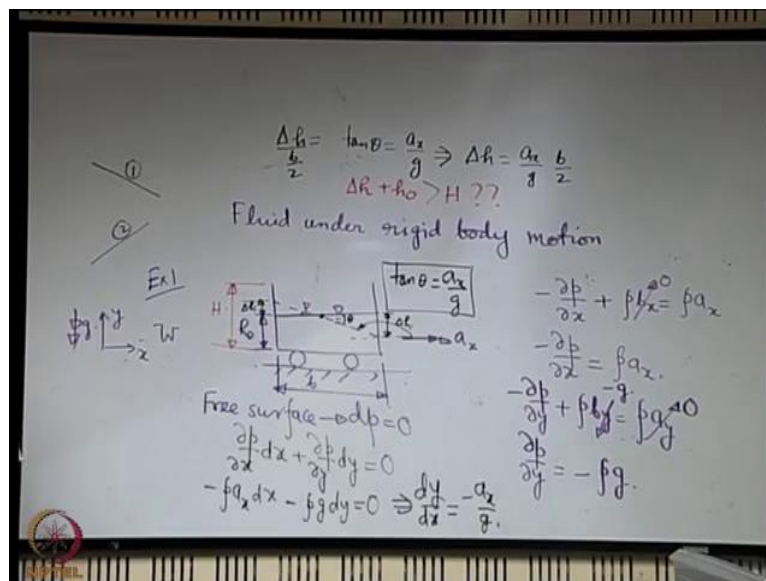 Δh/(b/2) = tanθ = aₓ/g ⇒ Δh = aₓ/g b/2
Δh + h₀ > H ??
①
②
Fluid under rigid body motion
Ex1
tanθ = aₓ/g
H
Δh
h₀
θ
Δh
aₓ
b
ρg
y
x
W
-∂p/∂x + ρbₓ→0 = ρaₓ
-∂p/∂x = ρaₓ.
-∂p/∂y + ρb_y→-g = ρa_y→0
∂p/∂y = -ρg.
Free surface → dp = 0
∂p/∂x dx + ∂p/∂y dy = 0
-ρaₓdx - ρgdy = 0 ⇒ dy/dx = -aₓ/g.
NPTEL